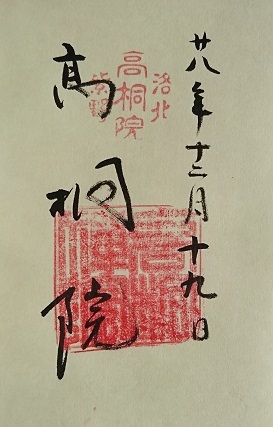 廿八年十二月十九日
洛北
高桐院
紫野
高桐院